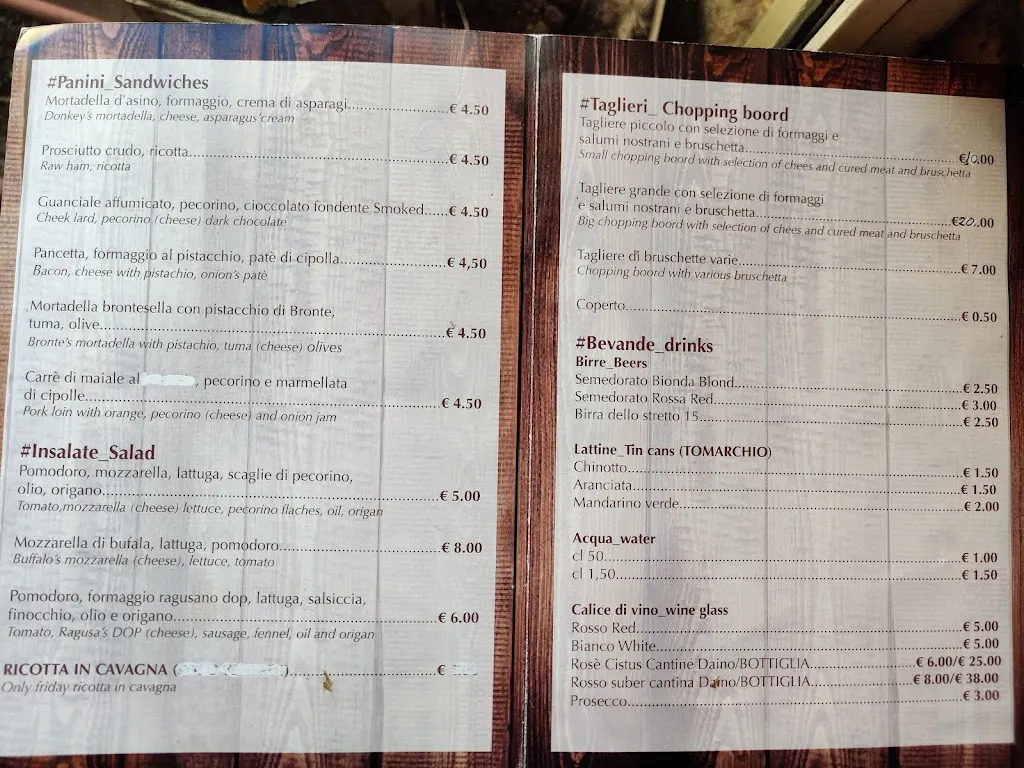 #Panini_Sandwiches
Mortadella d'asino, formaggio, crema di asparagi...........................€ 4.50
Donkey's mortadella, cheese, asparagus cream
Prosciutto crudo, ricotta...........................€ 4.50
Raw ham, ricotta
Guanciale affumicato, pecorino, cioccolato fondente Smoked......€ 4.50
Cheek lard, pecorino (cheese) dark chocolate
Pancetta, formaggio al pistacchio, patè di cipolla...........................€ 4,50
Bacon, cheese with pistachio, onion's patè
Mortadella brontesella con pistacchio di Bronte,
tuma, olive...........................€ 4.50
Bronte's mortadella with pistachio, tuma (cheese) olives
Carrè di maiale al , pecorino e marmellata
di cipolle...........................€ 4.50
Pork loin with orange, pecorino (cheese) and onion jam
#Insalate_Salad
Pomodoro, mozzarella, lattuga, scaglie di pecorino,
olio, origano...........................€ 5.00
Tomato,mozzarella (cheese) lettuce, pecorino flaches, oil, origan
Mozzarella di bufala, lattuga, pomodoro...........................€ 8.00
Buffalo's mozzarella (cheese), lettuce, tomato
Pomodoro, formaggio ragusano dop, lattuga, salsiccia,
finocchio, olio e origano...........................€ 6.00
Tomato, Ragusa's DOP (cheese), sausage, fennel, oil and origan
RICOTTA IN CAVAGNA ( )...........................€
Only friday ricotta in cavagna
#Taglieri_ Chopping boord
Tagliere piccolo con selezione di formaggi e
salumi nostrani e bruschetta...........................€10.00
Small chopping boord with selection of chees and cured meat and bruschetta
Tagliere grande con selezione di formaggi
e salumi nostrani e bruschetta...........................€20.00
Big chopping boord with selection of chees and cured meat and bruschetta
Tagliere di bruschette varie...........................€ 7.00
Chopping boord with various bruschetta
Coperto...........................€ 0.50
#Bevande_drinks
Birre_Beers
Semedorato Bionda Blond...........................€ 2.50
Semedorato Rossa Red...........................€ 3.00
Birra dello stretto 15...........................€ 2.50
Lattine_Tin cans (TOMARCHIO)
Chinotto...........................€ 1.50
Aranciata...........................€ 1.50
Mandarino verde...........................€ 2.00
Acqua_water
cl 50...........................€ 1.00
cl 1,50...........................€ 1.50
Calice di vino_wine glass
Rosso Red...........................€ 5.00
Bianco White...........................€ 5.00
Rosè Cistus Cantine Daino/BOTTIGLIA...........................€ 6.00/€ 25.00
Rosso suber cantina Daino/BOTTIGLIA...........................€ 8.00/€ 38.00
Prosecco...........................€ 3.00